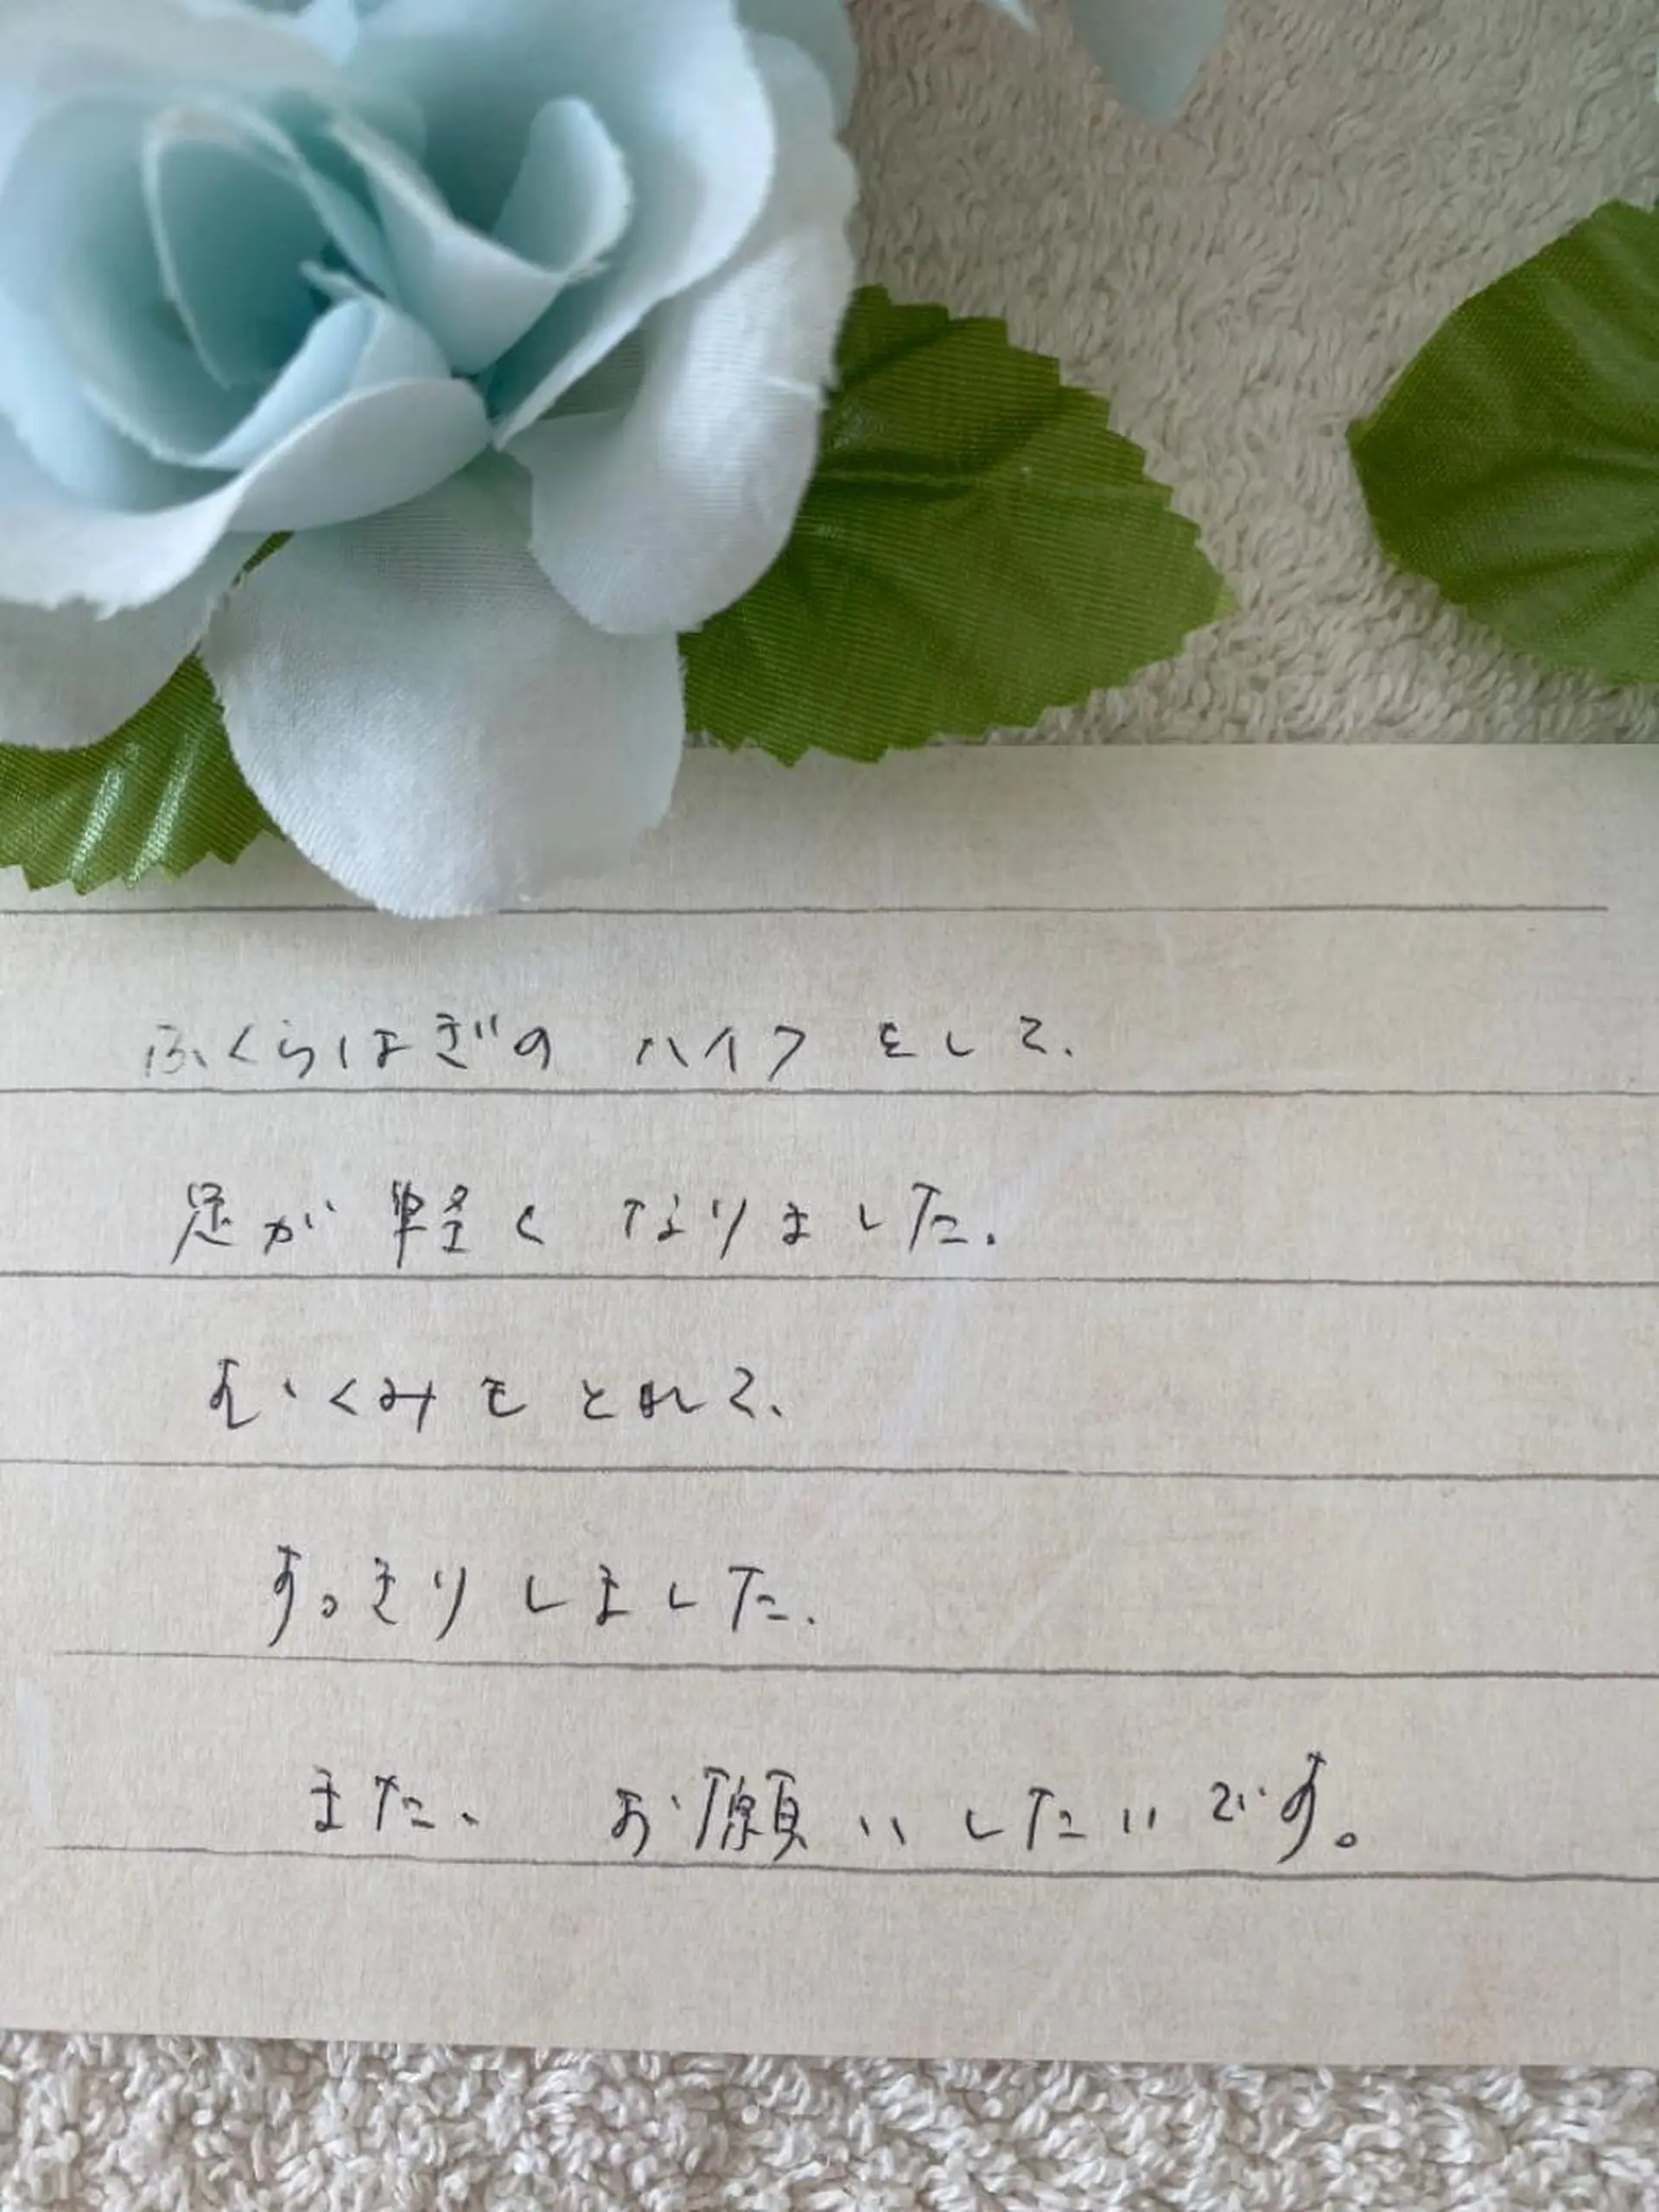 ふくらはぎの ハイフ をして、
足が 軽く なりました。
むくみも とれて、
すっきりしました。
また、 お願いしたいです。